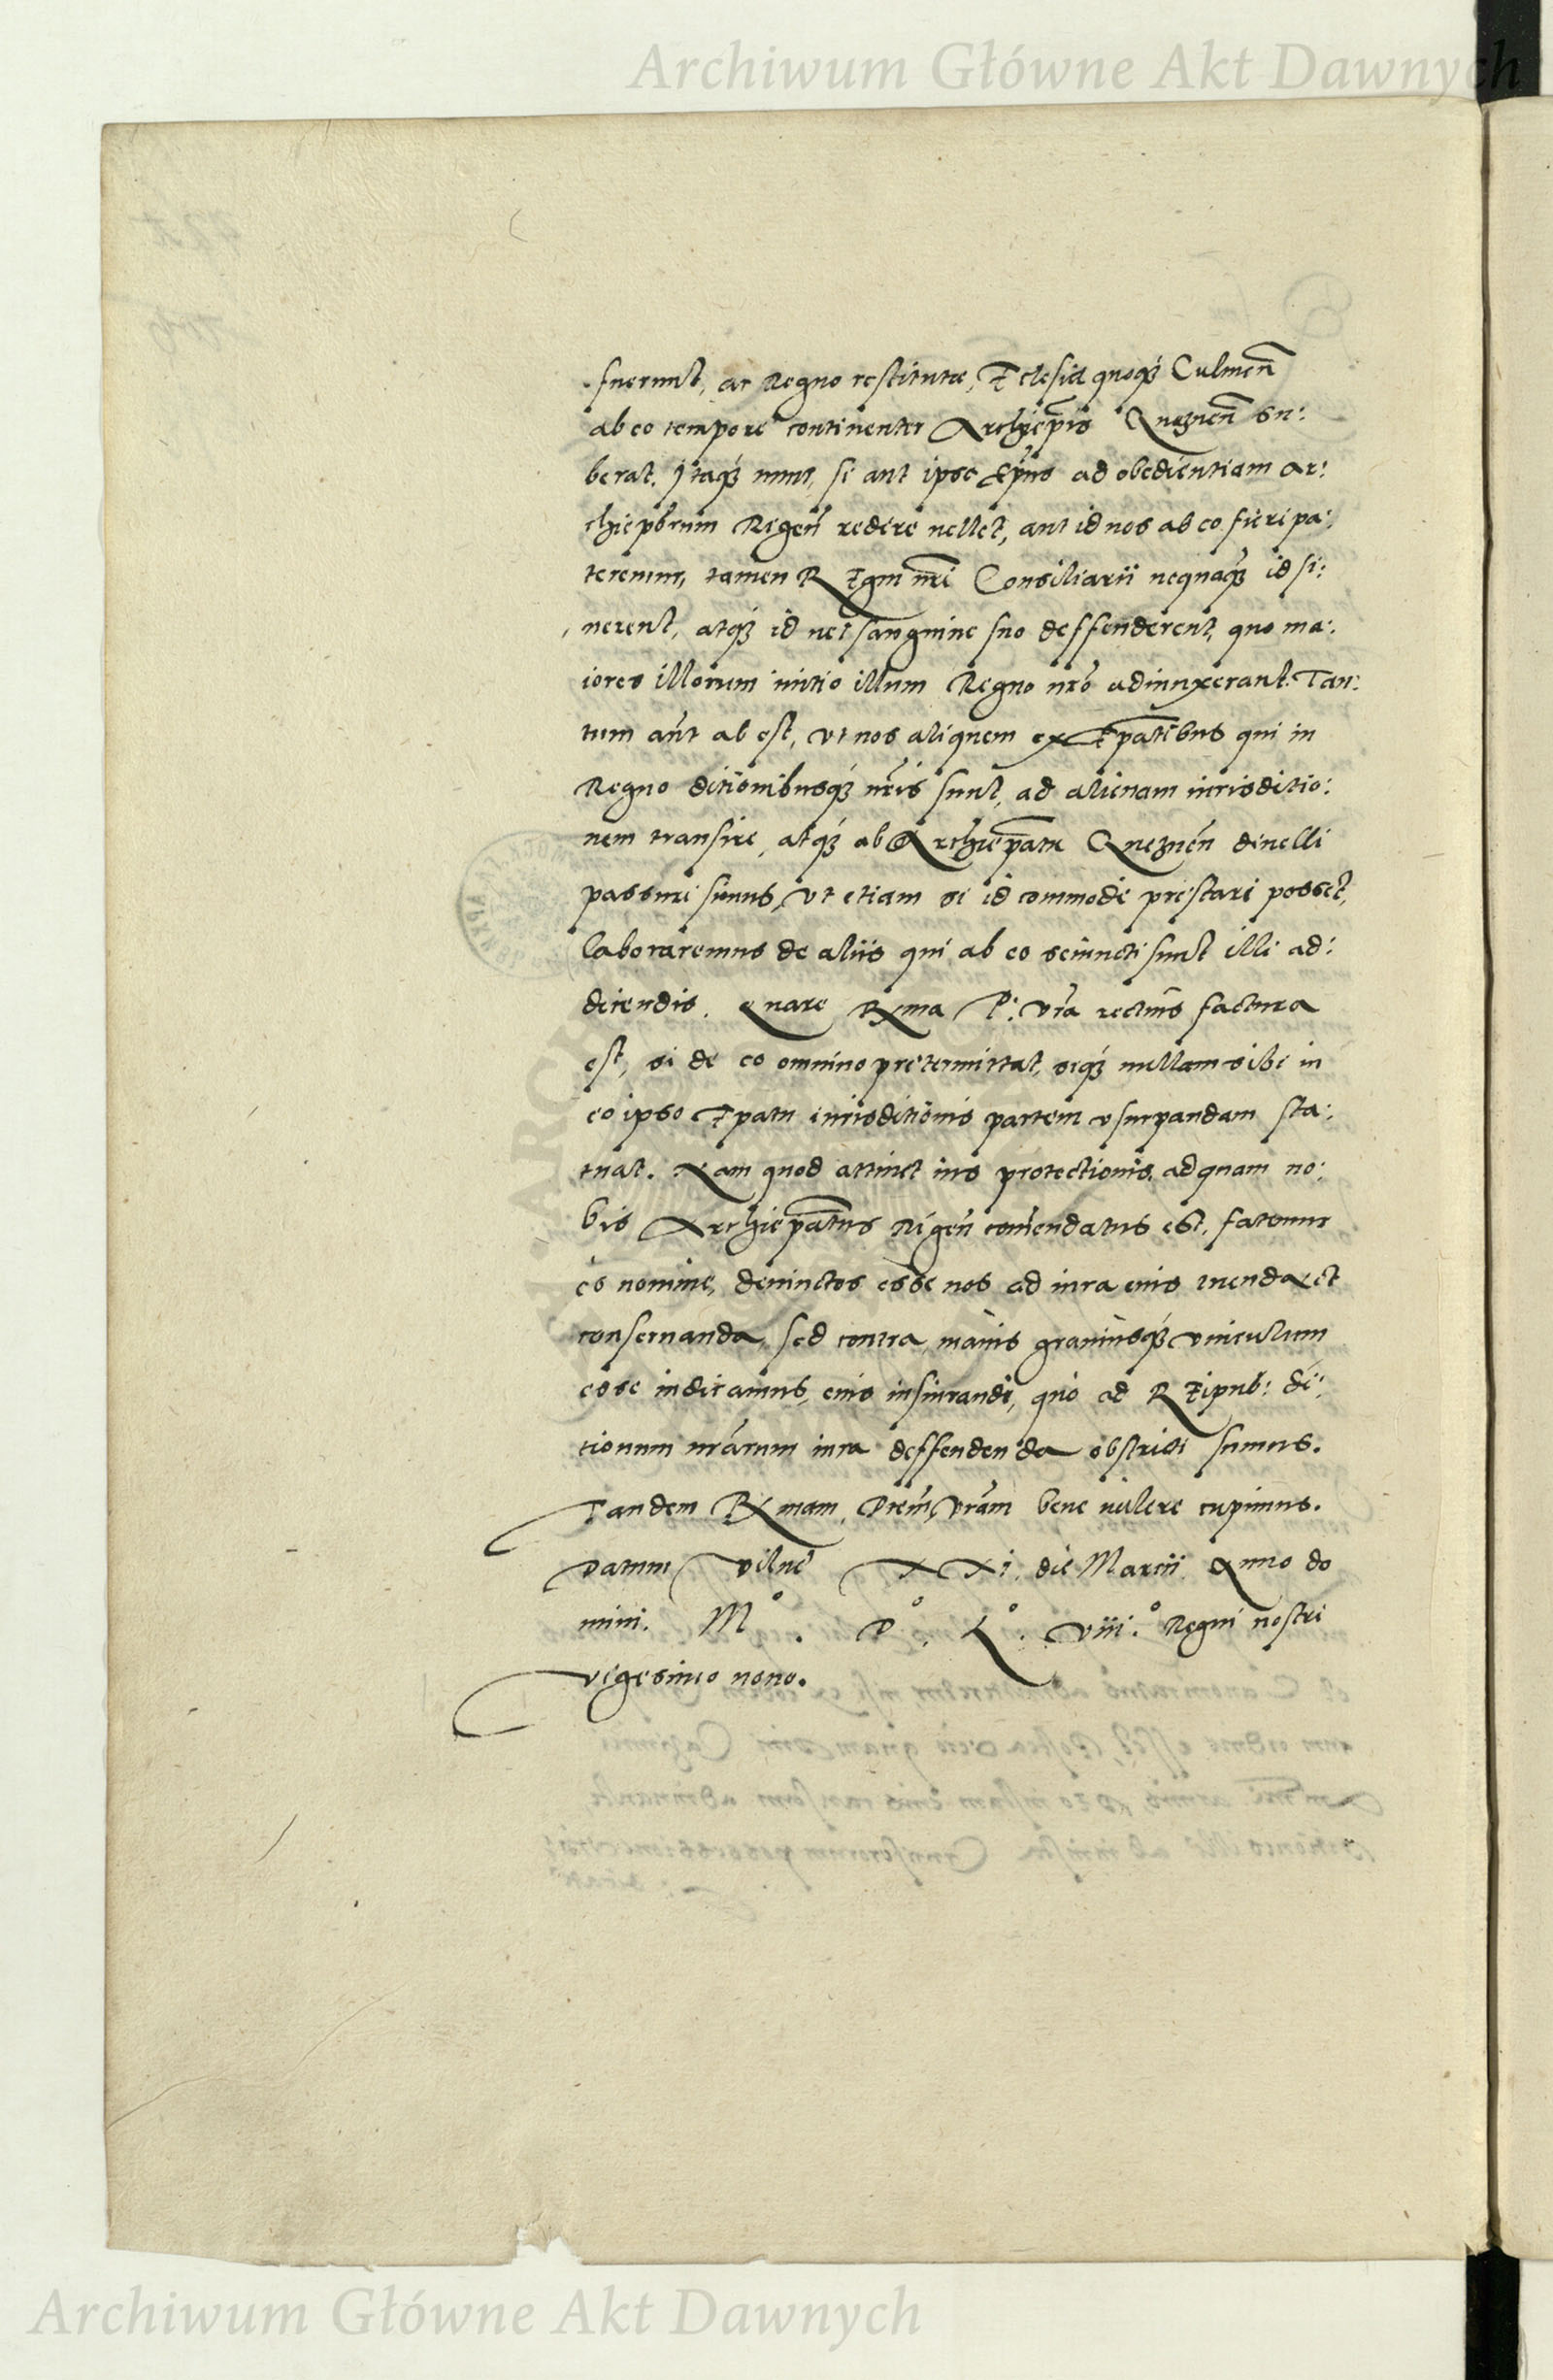 Archiwum Główne Akt Dawnych
fuerunt, ac Regno restitutae, Eclesia quoq́ꝫ Culmen̄
ab eo tempore continenter Archiēpis Gneznen̄ su:
berat. Itaq́ꝫ nunc, si aut ipse Ep̄us ad obedientiam ar:
chiep̄orum Rigen̄ redire vellet, aut id nos ab eo fieri pa:
teremur, tamen REgni nr̄i Consiliarii nequaq́ꝫ id si:
nerent, atq́ꝫ id vel sanguine suo deffenderent, quo ma:
iores illorum initio illum Regno nr̄o adiunxerant. Tan:
tum aūt ab est, ut nos aliquem ex Ep̄atibus qui in
Regno ditionibusq́ꝫ nr̄is sunt, ad alienam iurisditio:
nem transire, atq́ꝫ ab Archiep̄atu Gneznen̄ divelli
passuri simus, ut etiam si id commode prestari posset,
laboraremus de aliis qui ab eo seiuncti sunt illi ad:
diciendis. Quare Rxma P: Vr̄a rectius factura
est, si de eo omnino pretermittat, seq́ꝫ nullam sibi in
eo ipso Ep̄atu iurisditionis partem usurpandam sta:
tuat. Nam quod attinet ius protectionis, ad quam no:
bis Archiep̄atus Rigen̄ com̄endatus est, fatemur
eo nomine, devinctos esse nos ad iura eius tuenda et
conservanda, sed contra, maius graviusq́ꝫ vinculum
esse iudicamus, eius iusiurandi, quo ad REipub: di:
tionum nr̄arum iura deffendenda obstricti sumus.
Tandem Rxmam, Ptem̄ Vr̄am bene valere cupimus.
Datum Vilnę XXI. die Marcii. Anno do
mini. M° . D° . L° . viii.° Regni nostri
vigesimo nono.
Archiwum Główne Akt Dawnych